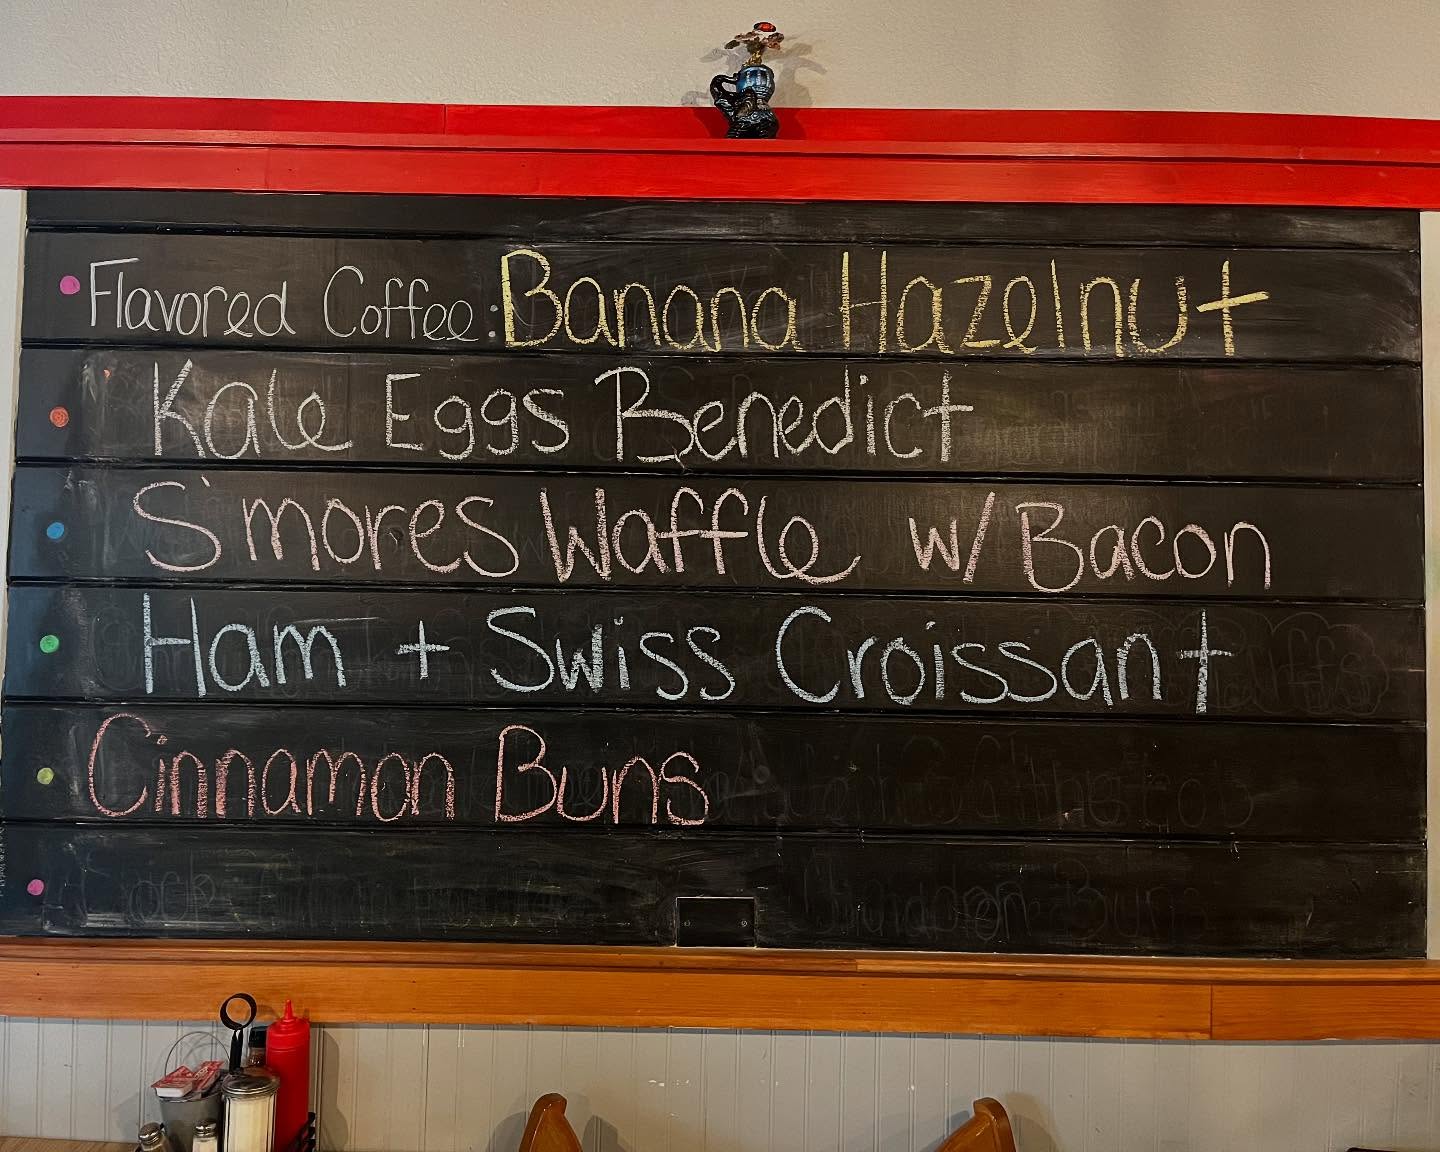 Flavored Coffee: Banana Hazelnut
Kale Eggs Benedict
S'mores Waffle w/ Bacon
Ham + Swiss Croissant
Cinnamon Buns